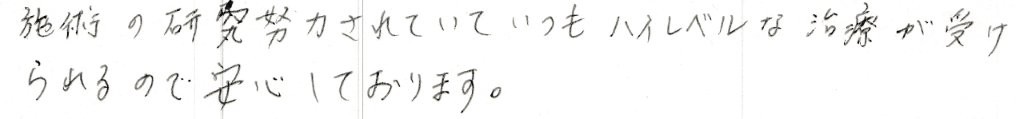 施術の研究努力されていていつもハイレベルな治療が受け
られるので安心しております。